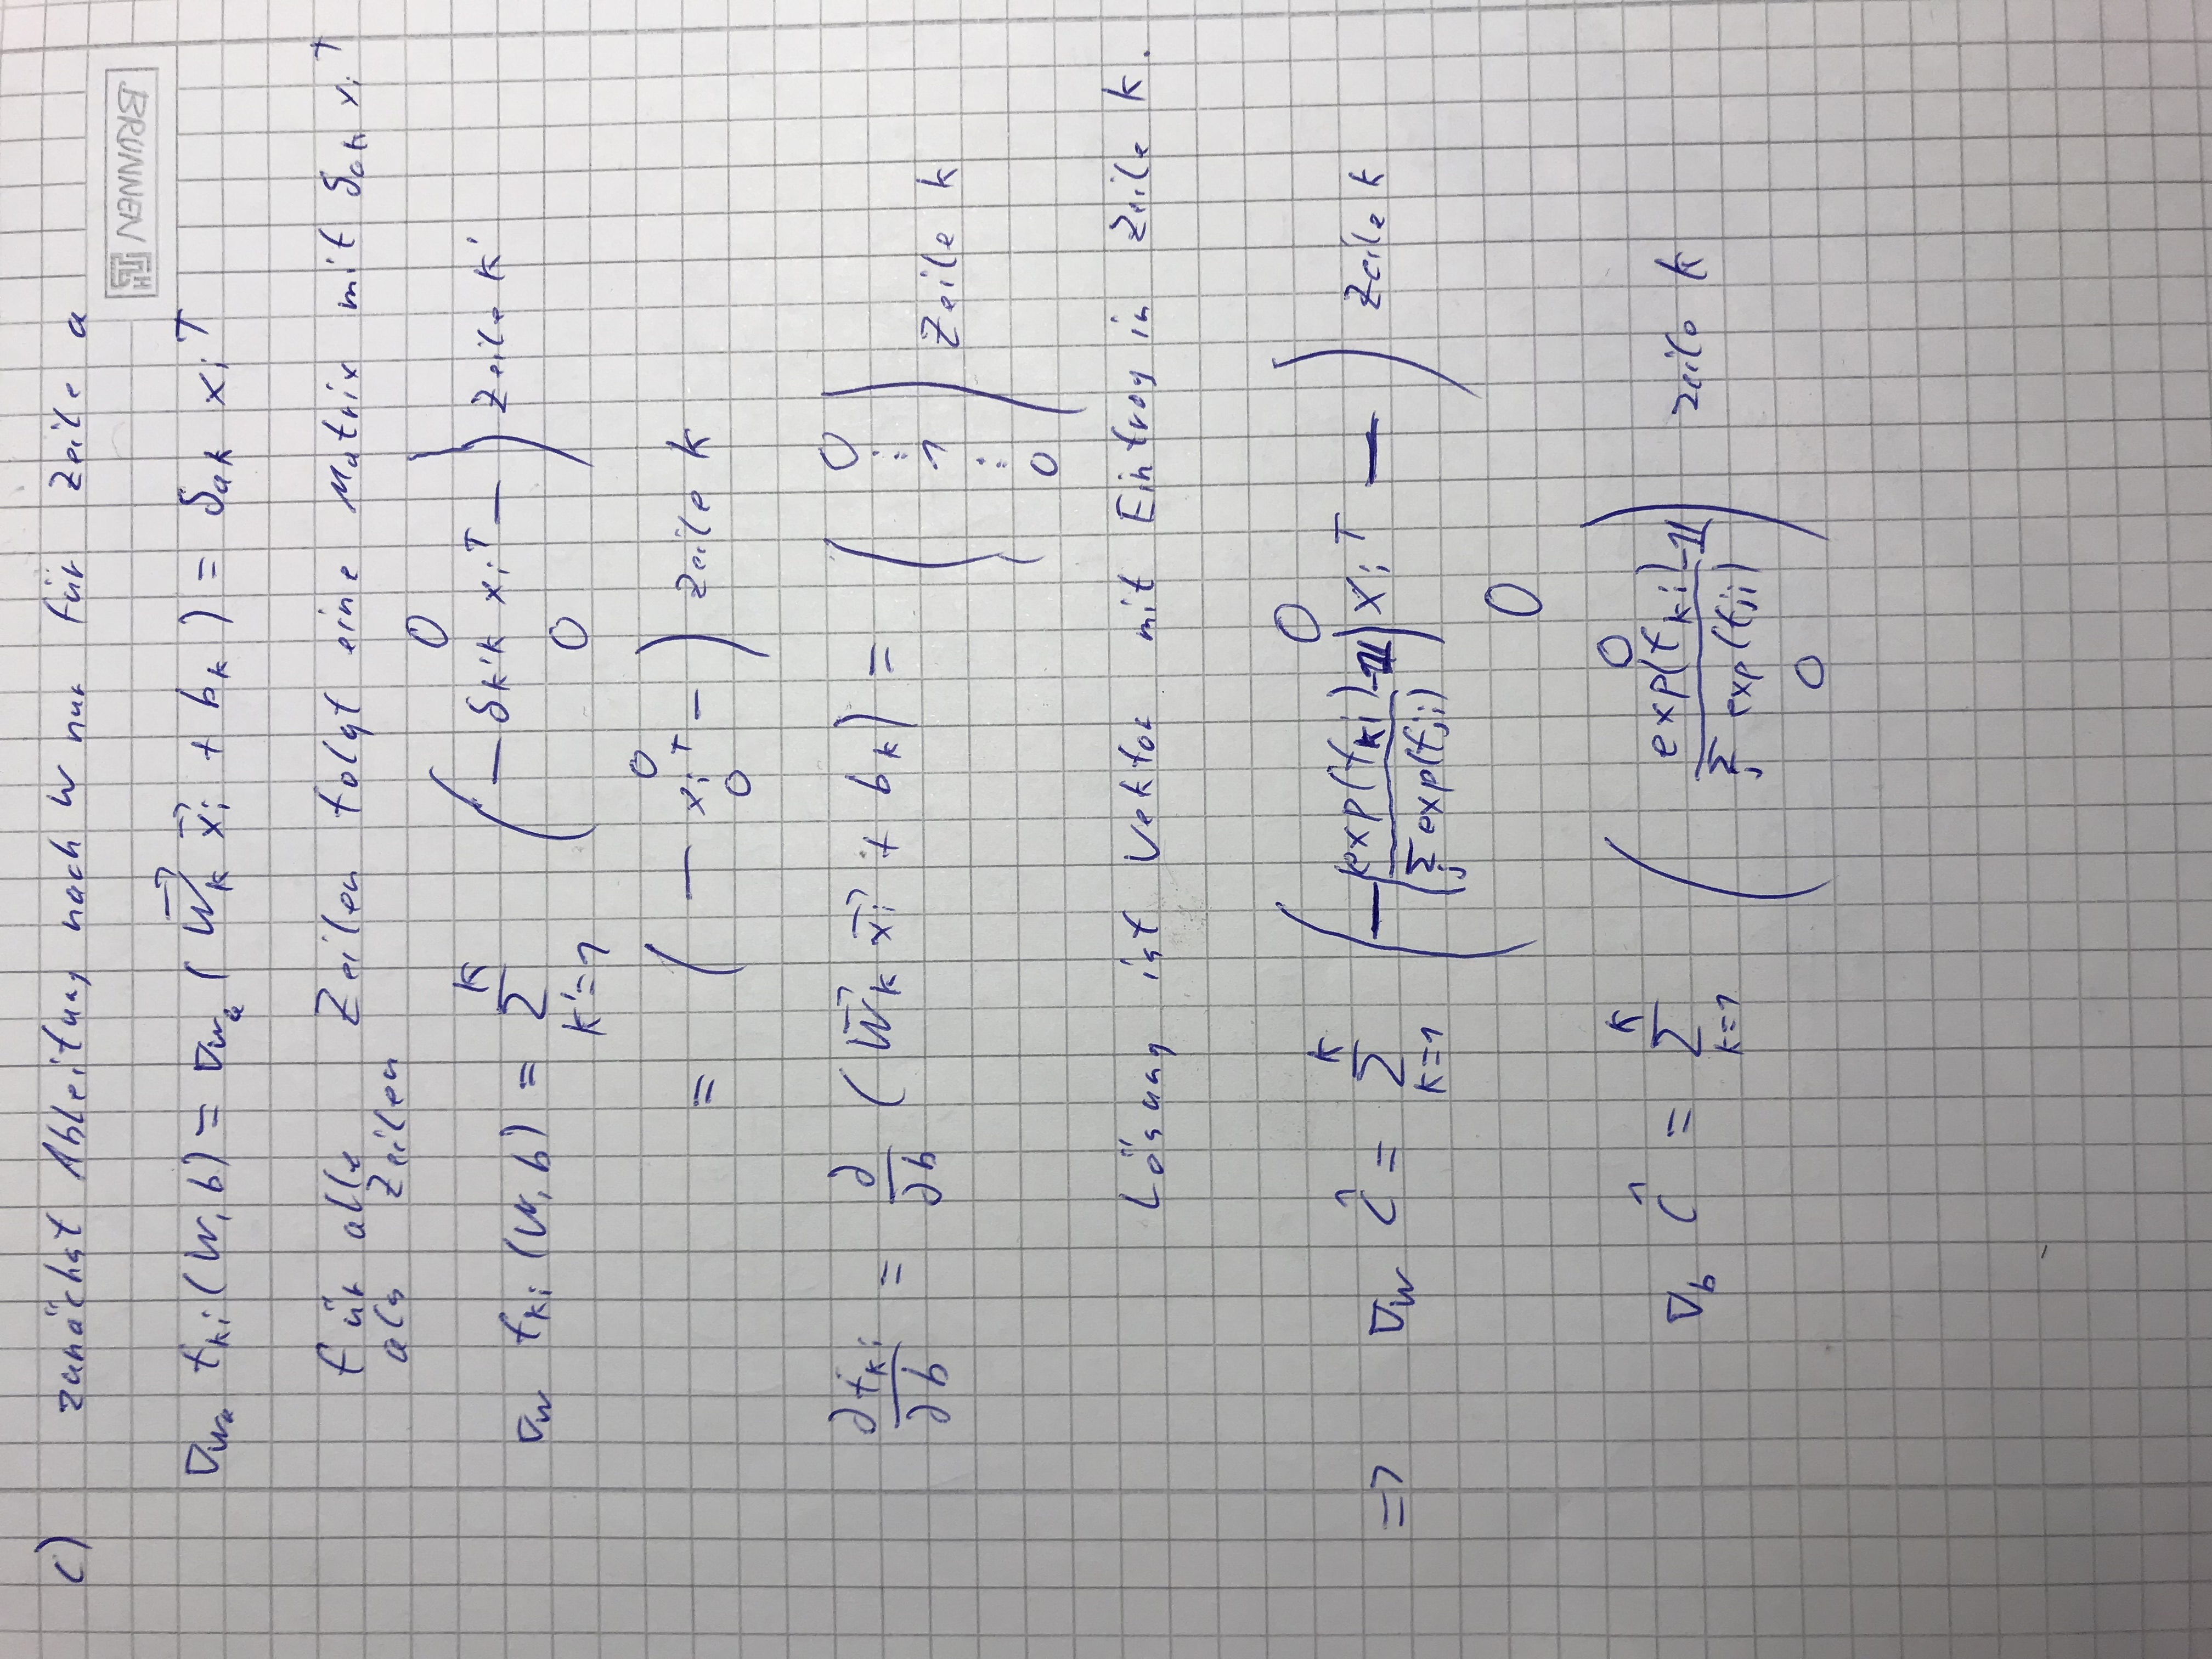 c) zunächst Ableitung nach W nur für Zeile a
BRUNNEN
∇_{W_a} f_{ki}(W,b) = ∇_{W_a} (\vec{W_k} \vec{x_i} + b_k) = δ_{ak} x_i^T
für alle Zeilen folgt eine Matrix mit δ_{ak} x_i^T
als Zeilen
∇_W f_{ki}(W,b) = \sum_{k'=1}^{K} ( 0 — δ_{k'k} x_i^T — 0 ) Zeile k'
= ( 0 — x_i^T — 0 ) Zeile k
\frac{∂f_{ki}}{∂b} = \frac{∂}{∂b} (\vec{W_k} \vec{x_i} + b_k) = ( 0 ⋮ 1 ⋮ 0 ) Zeile k
Lösung ist Vektor mit Eintrag in Zeile k.
=> ∇_W \hat{C} = \sum_{k=1}^{K} ( 0 — ( \frac{exp(f_{ki})}{\sum_j exp(f_{ji})} - 𝟙 ) x_i^T — 0 ) Zeile k
∇_b \hat{C} = \sum_{k=1}^{K} ( 0 \frac{exp(f_{ki})}{\sum_j exp(f_{ji})} - 𝟙 0 ) Zeile k